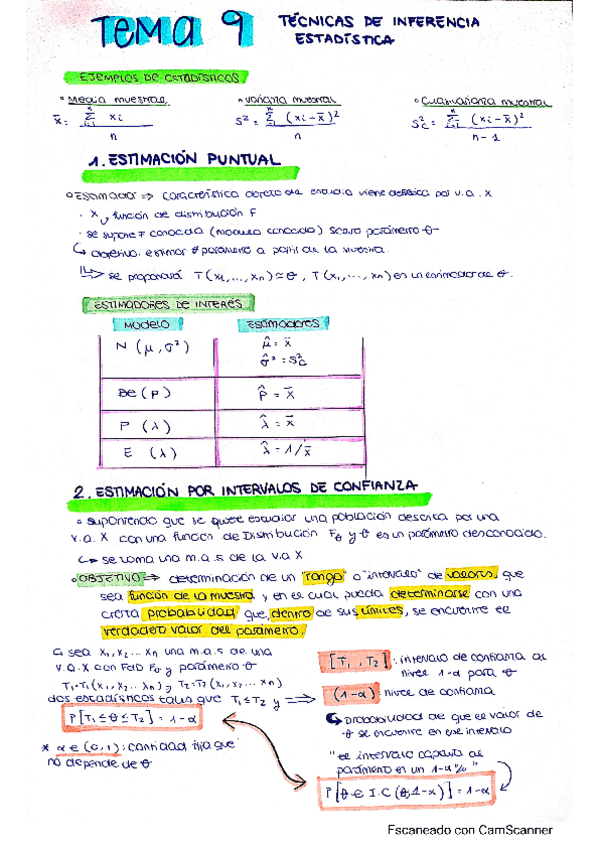 Tema 9 TÉCNICAS DE INFERENCIA
ESTADÍSTICA
EJEMPLOS DE ESTADÍSTICOS
• Media muestral • Varianza muestral • Cuasivarianza muestral
x̄ = Σ xi / n S² = Σ (xi - x̄)² / n S²c = Σ (xi - x̄)² / n-1
1. ESTIMACIÓN PUNTUAL
• Estimador => característica objeto de estudio viene descrita por v.a. X
· X función de distribución F
· se supone F conocida (modelo conocido) salvo parámetro θ
↳ objetivo: estimar parámetro a partir de la muestra.
=> se propondrá T(x1,...,xn) ≃ θ, T(x1,...,xn) es un estimador de θ.
ESTIMADORES DE INTERÉS
MODELO ESTIMADORES
N (μ, σ²) μ̂ = x̄
σ̂² = S²c
Be (p) p̂ = x̄
P (λ) λ̂ = x̄
E (λ) λ̂ = 1/x̄
2. ESTIMACIÓN POR INTERVALOS DE CONFIANZA
• Suponiendo que se quiere estudiar una población descrita por una
v.a. X con una función de Distribución Fθ y θ es un parámetro desconocido.
↳ se toma una m.a.s de la v.a X
• OBJETIVO => determinación de un "rango" o "intervalo" de valores, que
sea función de la muestra y en el cual pueda determinarse con una
cierta probabilidad que, dentro de sus límites, se encuentre el
verdadero valor del parámetro.
sea x1, x2 ... xn una m.a.s de una
v.a. X con FdD Fθ y parámetro θ
T1=T1(x1, x2 ... xn); T2=T2(x1, x2, ... xn)
dos estadísticos tales que T1≤T2 y =>
P[T1≤θ≤T2] = 1-α
* α∈(0,1): cantidad fija que
no depende de θ
[T1, T2]: intervalo de confianza al
nivel 1-α para θ
(1-α) nivel de confianza
↳ probabilidad de que el valor de
θ se encuentre en ese intervalo
"el intervalo captura al
parámetro en un 1-α %"
P[θ∈ I.C (θ, 1-α)] = 1-α
Escaneado con CamScanner